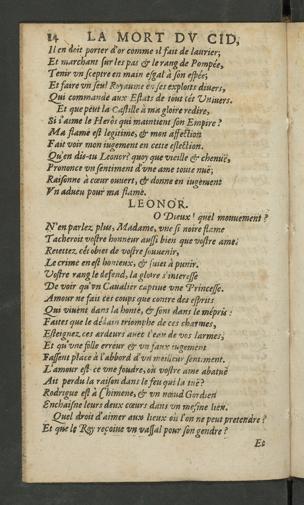 14 LA MORT DV CID,
Il en doit porter d'or comme il fait de laurier;
Et marchant sur les pas & le rang de Pompée,
Tenir vn sceptre en main esgal à son espée;
Et faire vn seul Royaume en ses exploits diuers,
Qui commande aux Estats de tout cét Vniuers.
Et que peut la Castille à ma gloire redire,
Si i'aime le Herôs qui maintient son Empire?
Ma flame est legitime, & mon affection
Fait voir mon iugement en ceste eslection.
Qu'en dis-tu Leonor? quoy que vieille & chenuë,
Prononce vn sentiment d'vne ame toute nuë;
Raisonne à cœur ouuert, & donne en iugement
Vn adueu pour ma flame.
LEONOR.
O Dieux! quel mouuement?
N'en parlez plus, Madame, vne si noire flame
Tacheroit vostre honneur aussi bien que vostre ame:
Reiettez cét obiet de vostre souuenir,
Le crime en est honteux, & suiet à punir.
Vostre rang le defend, la gloire s'interesse
De voir qu'vn Caualier captiue vne Princesse.
Amour ne fait ces coups que contre des esprits
Qui viuent dans la honte, & sont dans le mépris:
Faites que le dédain triomphe de ces charmes,
Esteignez ces ardeurs auec l'eau de vos larmes;
Et qu'vne fille erreur & vn faux iugement
Fassent place à l'abord d'vn meilleur sentiment.
L'amour est-ce vne foudre, où vostre ame abatuë
Ait perdu la raison dans le feu qui la tuë?
Rodrigue est à Chimene, & vn nœud Gordien
Enchaisne leurs deux cœurs dans vn mesme lien.
Quel droit d'aimer aux lieux où l'on ne peut pretendre?
Et que le Roy reçoiue vn vassal pour son gendre?
Et